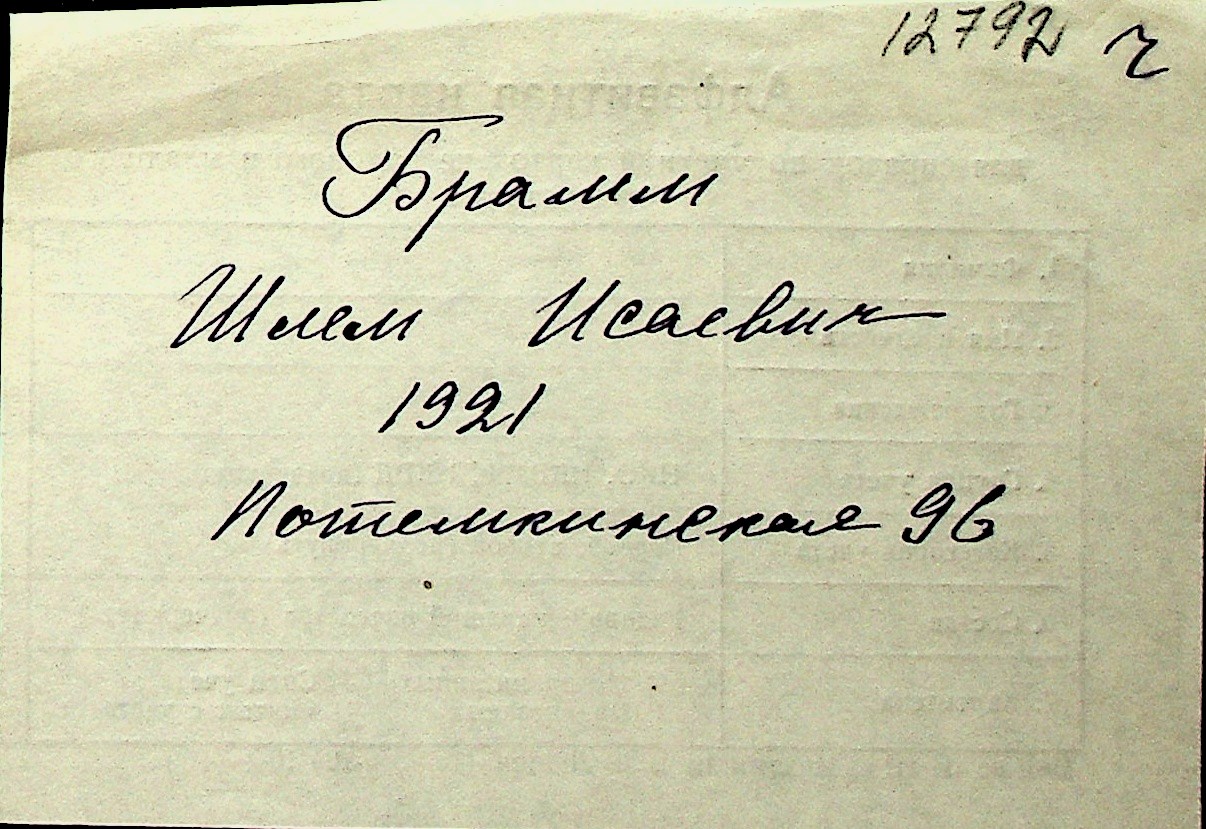 12792 ч
Брамм
Шлем Исаевич
1921
Потемкинская 96